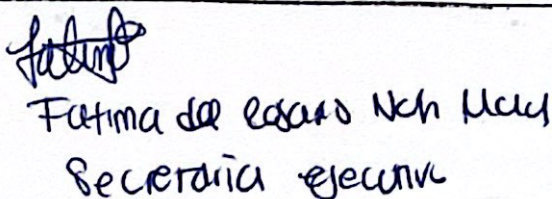 Fatima del rosario Noh May
Secretaria ejecutiva